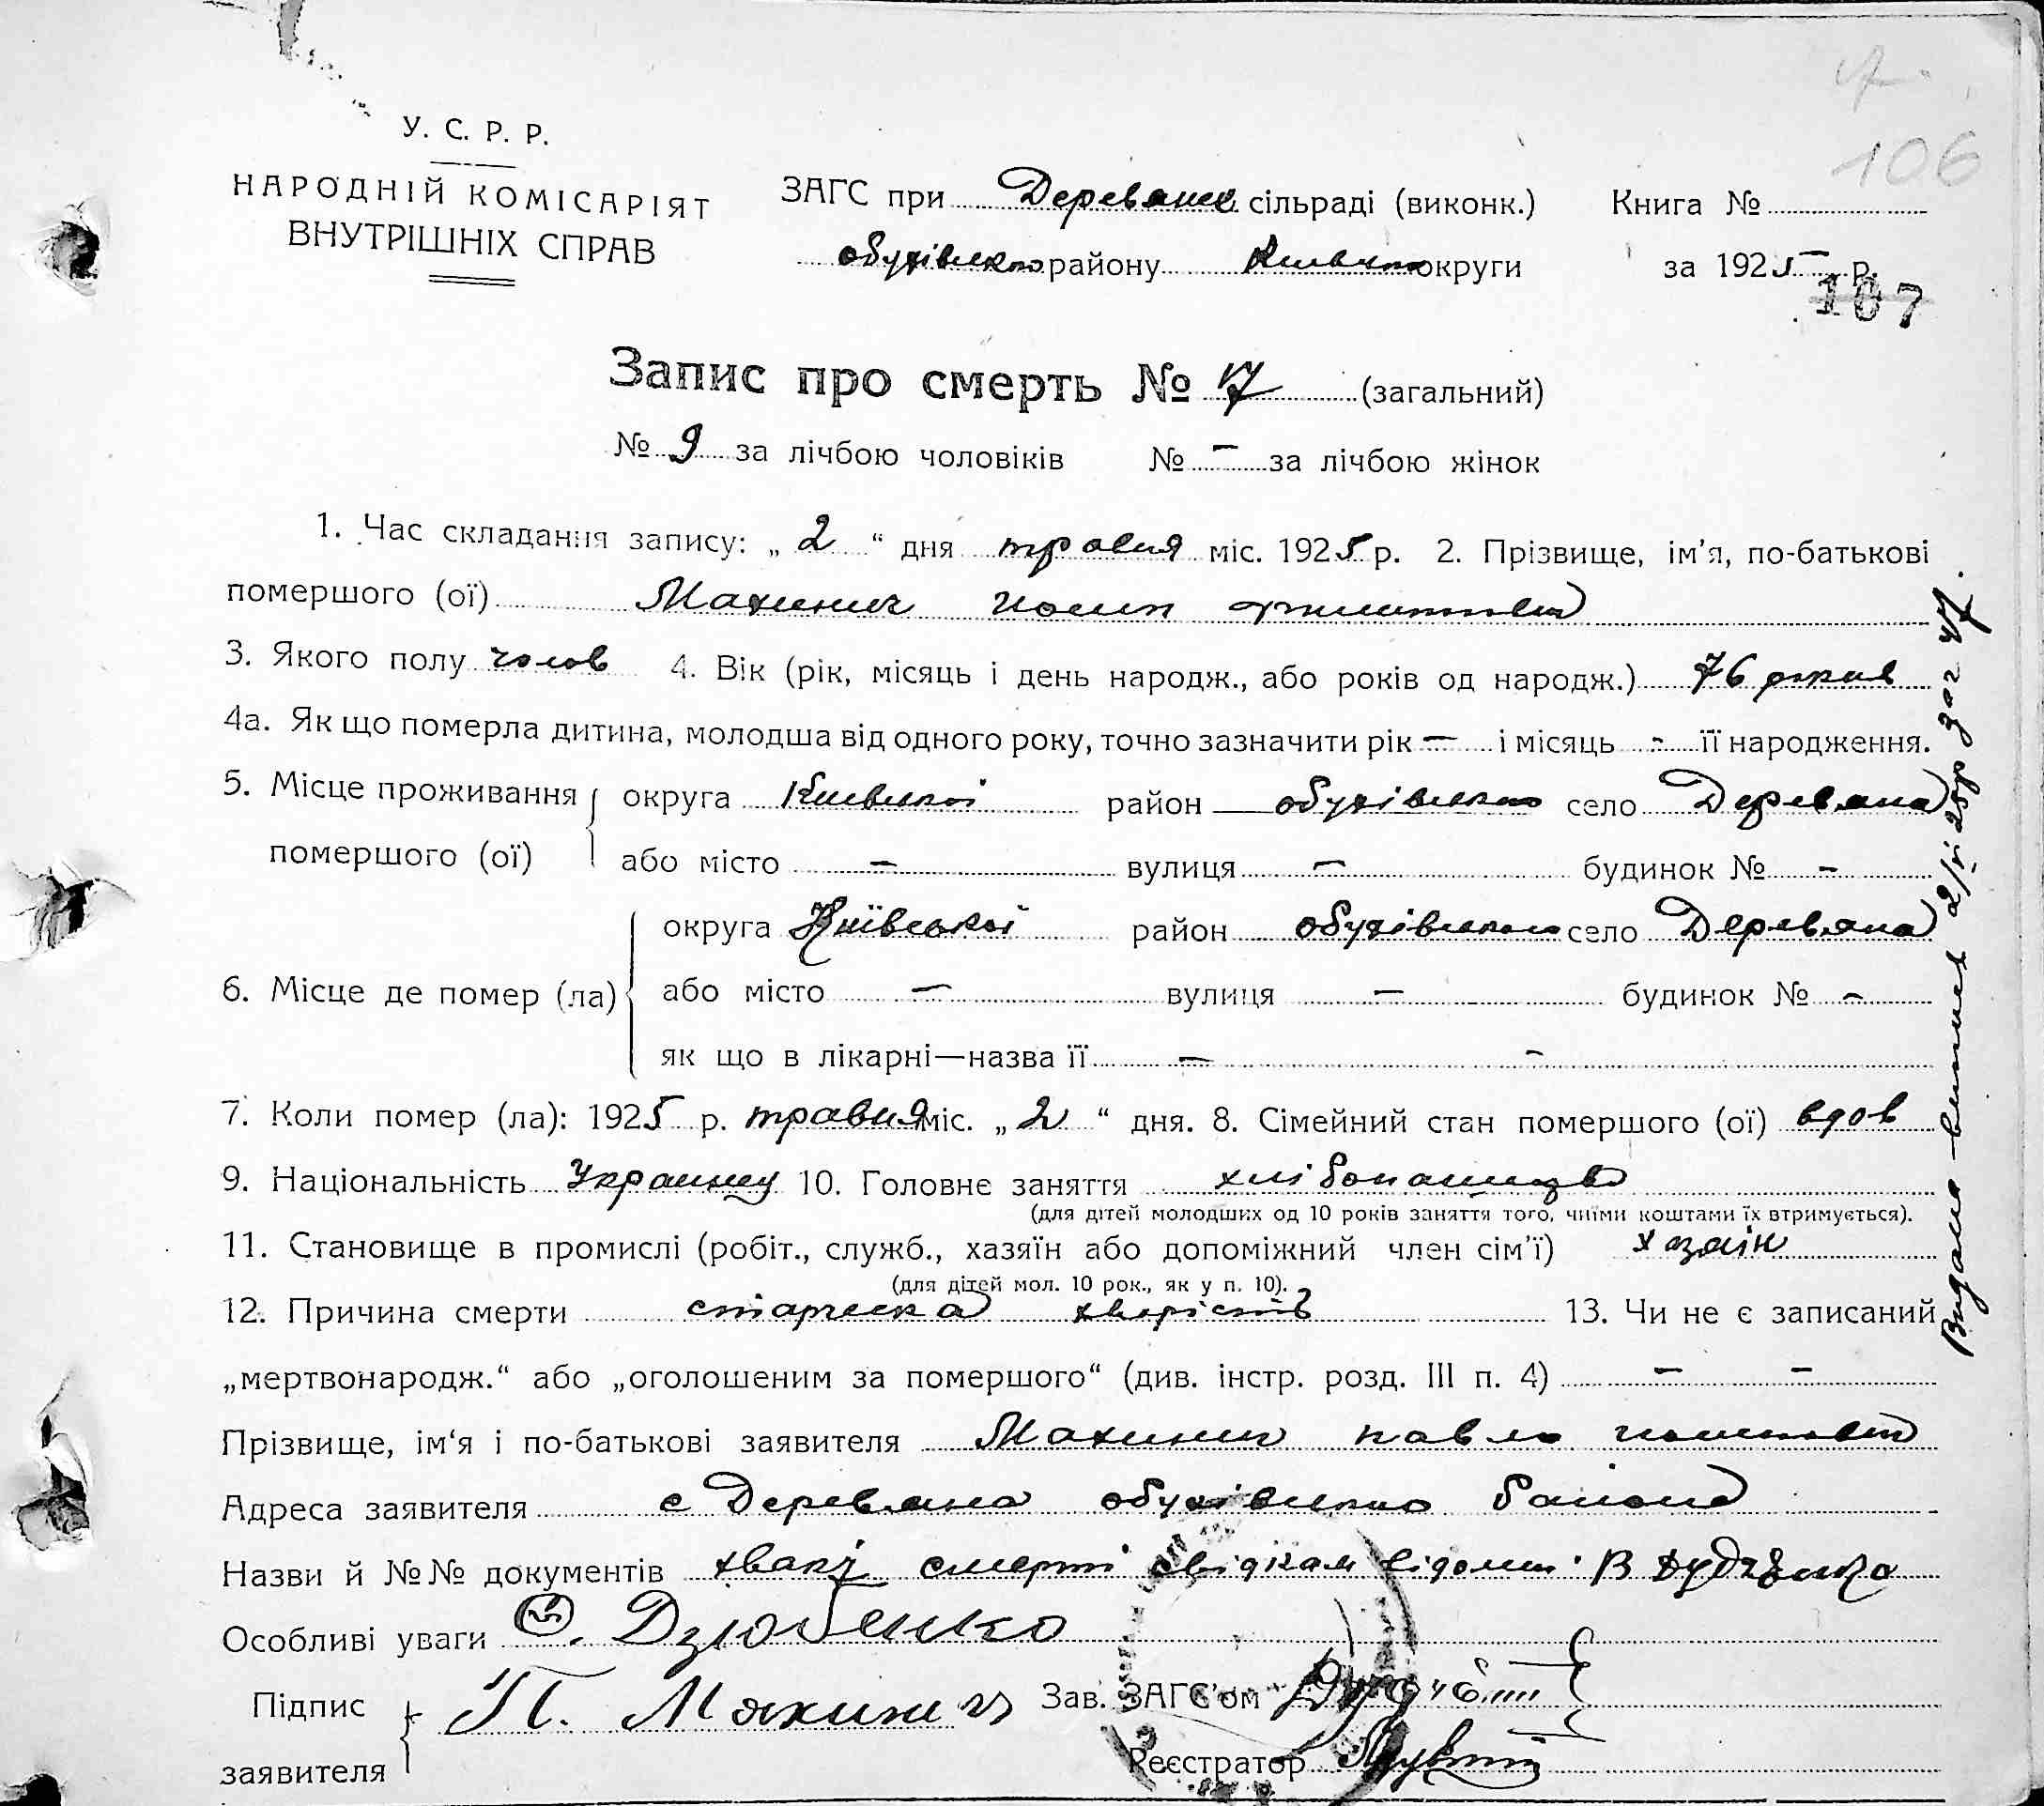 У. С. Р. Р.
НАРОДНІЙ КОМІСАРІЯТ
ВНУТРІШНІХ СПРАВ
106
ЗАГС при Деревянс. сільраді (виконк.) Книга №
обухівсько району Київсько округи за 1925 р.
107
Запис про смерть № 17 (загальний)
№ 9 за лічбою чоловіків № – за лічбою жінок
1. Час складання запису: „ 2 “ дня травня міс. 1925 р. 2. Прізвище, ім’я, по-батькові
помершого (ої) Махинич Иосип
3. Якого полу чолов 4. Вік (рік, місяць і день народж., або років од народж.) 76 роки
4а. Як що померла дитина, молодша від одного року, точно зазначити рік – і місяць - її народження.
5. Місце проживання округа Киевскоі район обухівсько село Деревяна
помершого (ої) або місто – вулиця – будинок № -
округа Київськоі район обухівського село Деревяна
6. Місце де помер (ла) або місто – вулиця – будинок № –
як що в лікарні—назва її – -
7. Коли помер (ла): 1925 р. травня міс. „ 2 “ дня. 8. Сімейний стан помершого (ої) вдов
9. Національність Украинец 10. Головне заняття хлібопашество
(для дітей молодших од 10 років заняття того, чиїми коштами їх втримується).
11. Становище в промислі (робіт., служб., хазяїн або допоміжний член сім’ї) хазаін
(для дітей мол. 10 рок., як у п. 10).
12. Причина смерти старческа хворість 13. Чи не є записаний
„мертвонародж.“ або „оголошеним за помершого“ (див. інстр. розд. III п. 4) – –
Прізвище, ім‘я і по-батькові заявителя Махинич павло
Адреса заявителя с Деревяна обухівсько
Назви й №№ документів смерті свідкам відомий В
Особливі уваги Ф. Дзюбенко
Підпис заявителя П. Махинич Зав. ЗАГС’ом
Реєстратор
Видана выпись 2/V 25р за № 17.